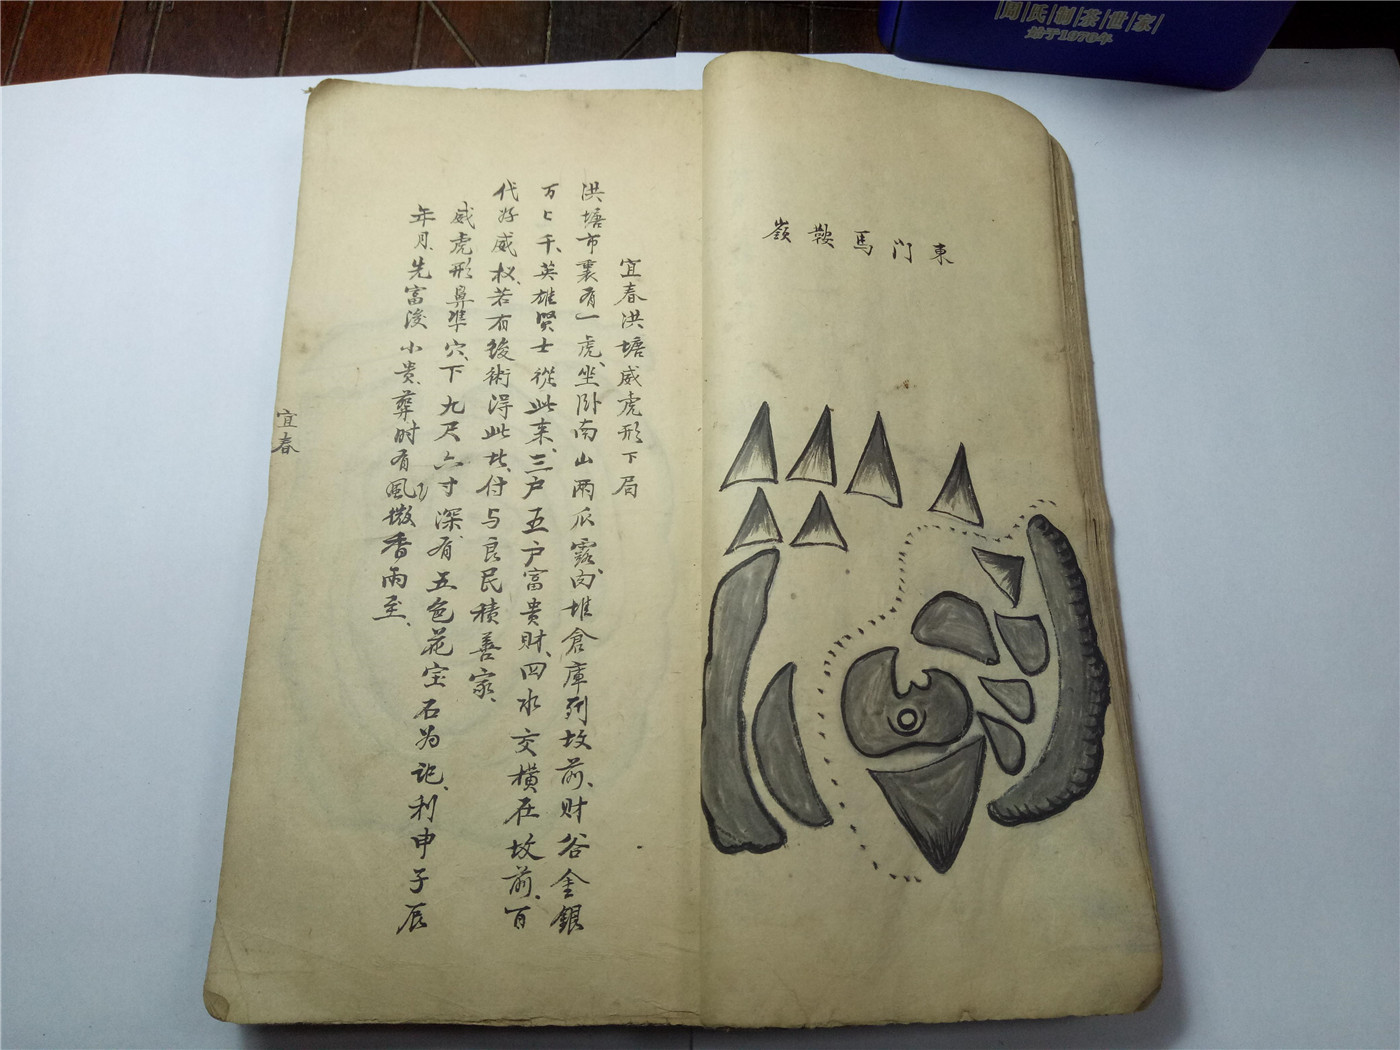 周氏制茶世家
始于1978年
東门馬鞍嶺
宜春洪塘威虎形下局
洪塘市裏有一虎、坐卧南山两爪露、肉堆倉庫列坟前、财谷金銀
万々千、英雄贤士從此来、三户五户富贵财、四水交横在坟前、百
代好威权、若有後術淂此地、付与良民積善家、
威虎形鼻準穴、下九尺六寸深、有五色花宝石为记、利申子辰
年月、先富後小贵、葬时有風撒香雨至、
宜春